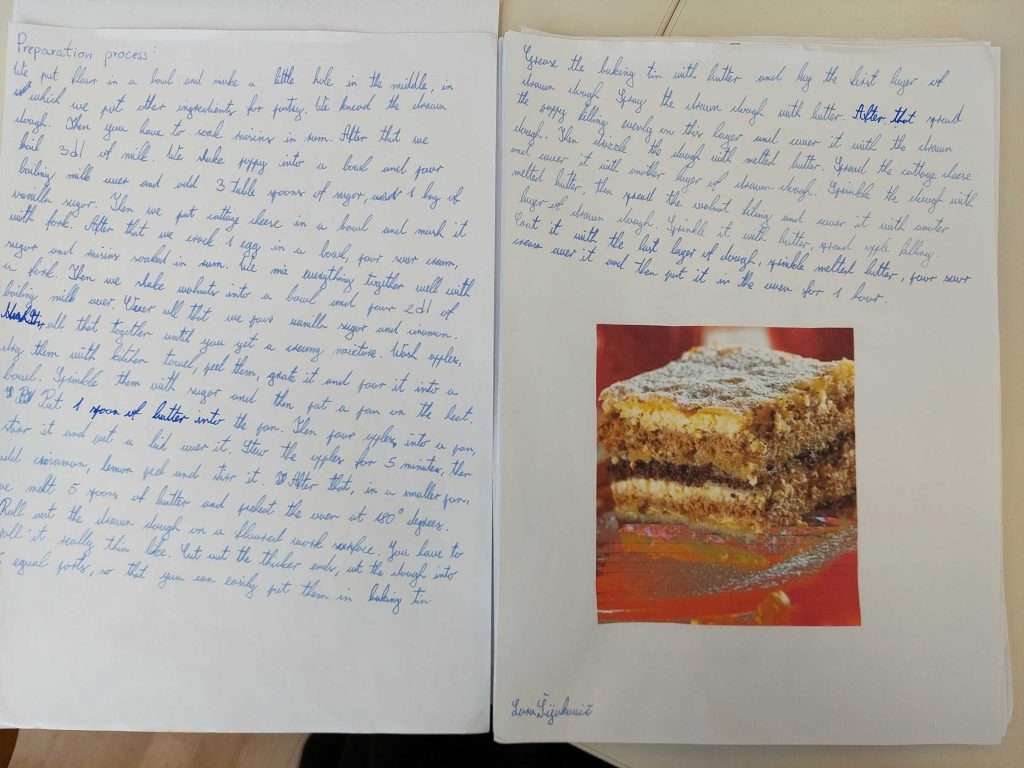 Preparation process:
We put flour in a bowl and make a little hole in the middle, in
which we put other ingredients for pastry. We knead the drawn
dough. Then you have to soak raisins in rum. After that we
boil 3dl of milk. We shake poppy into a bowl and pour
boiling milk over and add 3 table spoons of sugar, and 1 bag of
vanilla sugar. Then we put cottage cheese in a bowl and mash it
with fork. After that we crack 1 egg in a bowl, pour sour cream,
sugar and raisins soaked in rum. We mix everything together well with
a fork. Then we shake walnuts into a bowl and pour 2dl of
boiling milk over. Over all that we pour vanilla sugar and cinamon.
all that together until you get a creamy mixture. Wash apples,
dry them with kitchen towel, peel them, grate it and pour it into a
bowl. Sprinkle them with sugar and then put a pan on the heat.
Put 1 spoon of butter into the pan. Then pour apples into a pan,
stirr it and put a lid over it. Stew the apples for 5 minutes, then
add cinnamon, lemon peel and stirr it. After that, in a smaller pan,
we melt 5 spoons of butter and preheat the oven at 180° degrees.
Roll out the drawn dough on a floured work surface. You have to
roll it really thin like. Cut out the thicker ends, cut the dough into
equal parts, so that you can easily put them in baking tin.
Grease the baking tin with butter and lay the first layer of
drawn dough. Spray the drawn dough with butter. After that spread
the poppy filling evenly on this layer and cover it with the drawn
dough. Then drizzle the dough with melted butter. Spread the cottage cheese
and cover it with another layer of drawn dough. Sprinkle the dough with
melted butter, then spread the walnut filing and cover it with another
layer of drawn dough. Sprinkle it with butter, spread apple filling.
Coat it with the last layer of dough, sprinkle melted butter, pour sour
cream over it and then put it in the oven for 1 hour.
Lara Šijaković